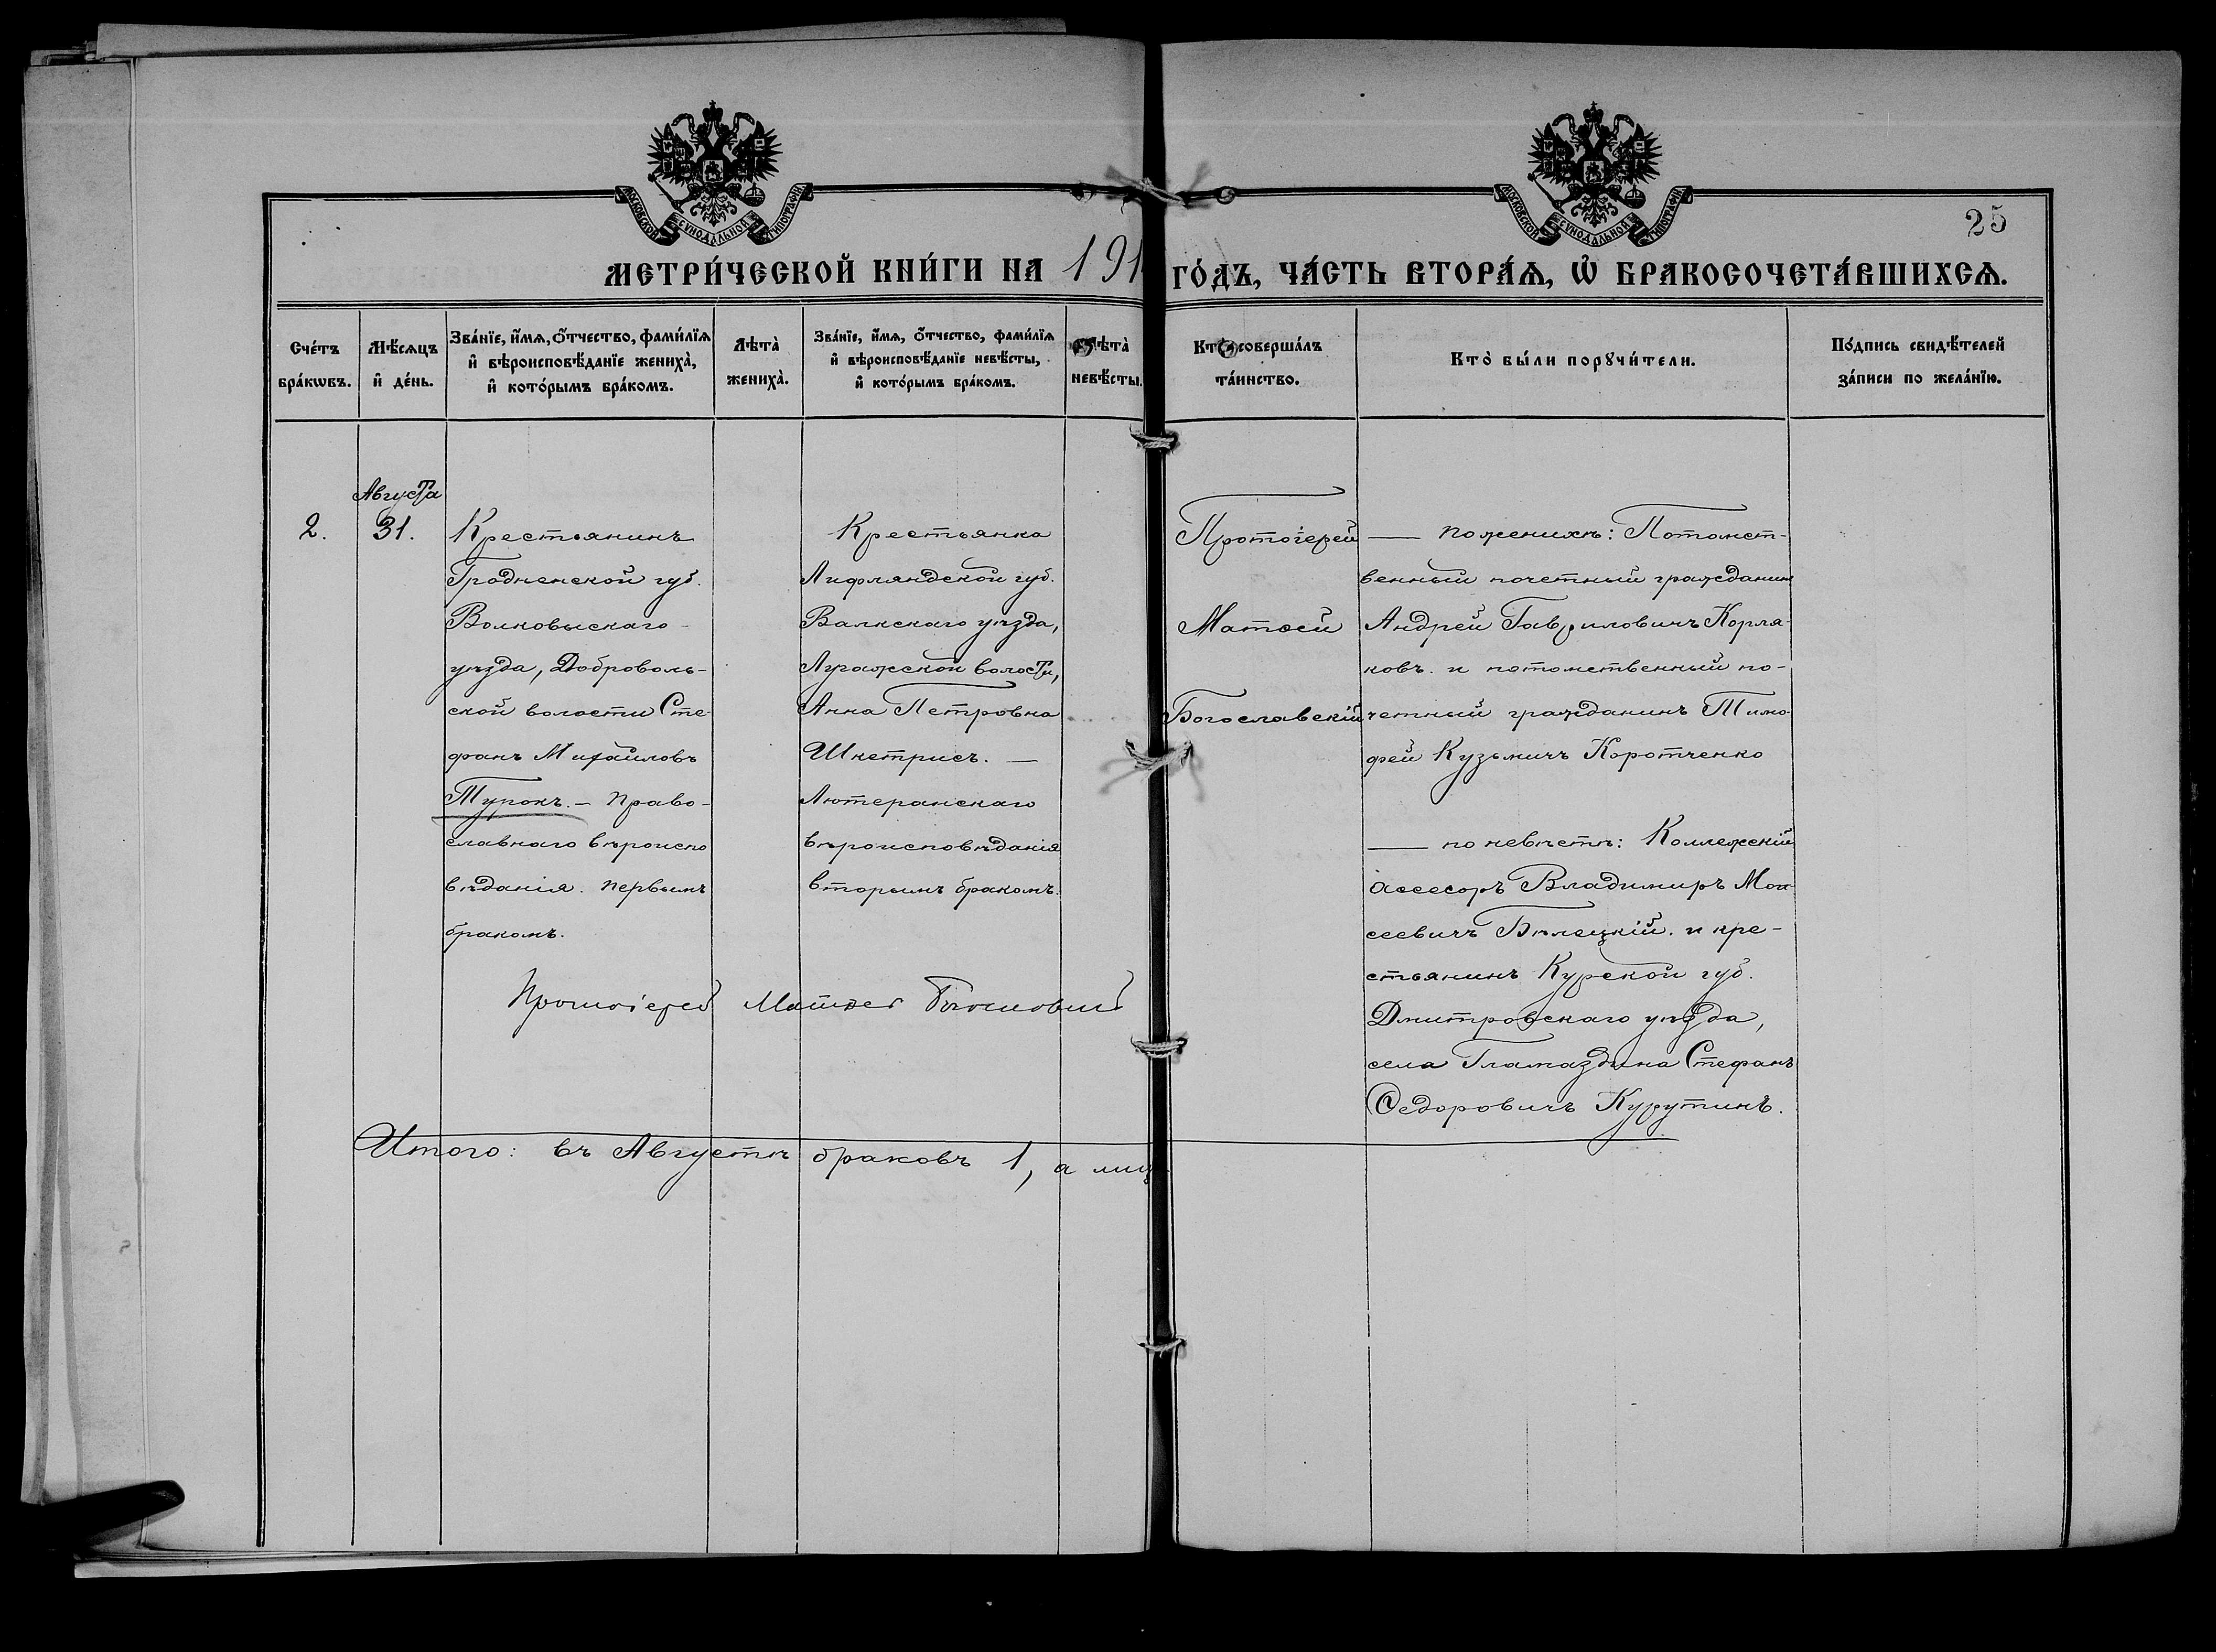 МОСКОВСКОЙ СѴНОДАЛЬНОЙ ТИПОГРАФІИ
МОСКОВСКОЙ СѴНОДАЛЬНОЙ ТИПОГРАФІИ
25
МЕТРИ́ЧЕСКОЙ КНИ́ГИ НА 191
ГО́ДЪ, ЧА́СТЬ ВТОРА́Ѧ, Ѡ҆ БРАКОСОЧЕТА́ВШИХСѦ.
Сче́тъ
бра́кѡвъ.
Мѣ́сѧцъ
и҆ де́нь.
Зва́нїе, и҆́мѧ, ѻ҆́тчество, фами́лїѧ
и҆ вѣроисповѣ́данїе жениха̀,
и҆ кото́рымъ бра́комъ.
Лѣта̀
жениха̀.
Зва́нїе, и҆́мѧ, ѻ҆́тчество, фами́лїѧ
и҆ вѣроисповѣ́данїе невѣ́сты,
и҆ кото́рымъ бра́комъ.
Лѣта̀
невѣ́сты.
Кто̀ соверша́лъ
та́инство.
Кто̀ бы́ли порꙋчи́тели.
По́дпись свидѣ́телей
за́писи по жела́нїю.
2.
Августа
31.
Крестьянинъ
Гродненской губ.
Волковыскаго
уѣзда, Доброволь-
ской волости Сте-
фанъ Михайловъ
Тупокъ. - Право-
славнаго вѣроиспо
вѣданія. первымъ
бракомъ.
Крестьянка
Лифляндской губ.
Валкскаго уѣзда,
Лугажской волости,
Анна Петровна
Шкетрисъ. —
Лютеранскаго
вѣроисповѣданія
вторымъ бракомъ.
Протоіерей
Матѳей
Богославскій
— По женихѣ: Потомст-
венный почетный гражданинъ
Андрей Гавриловичъ Корля-
ковъ. и потомственный по-
четный гражданинъ Тимо-
фей Кузьмичъ Коротченко
— по невѣстѣ: Коллежскій
асессоръ Владимиръ Мои
сеевичъ Бѣлецкій. и кре-
стьянинъ Курской губ.
Дмитровскаго уѣзда,
села Гламаздина Стефанъ
Ѳедоровичъ Курутинъ.
Протоіерей Матѳей Богословскій
Итого: въ Августѣ браковъ 1, а лиц